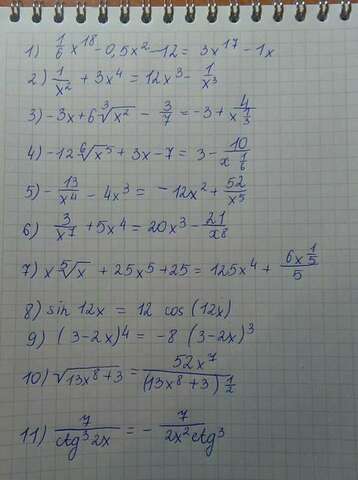 1) 1/6 x^18 - 0,5x^2 - 12 = 3x^17 - 1x
2) 1/x^2 + 3x^4 = 12x^3 - 1/x^3
3) -3x + 6 ∛x^2 - 3/7 = -3 + 4/x^(1/3)
4) -12 ⁶√x^5 + 3x - 7 = 3 - 10/x^(1/6)
5) - 13/x^4 - 4x^3 = -12x^2 + 52/x^5
6) 3/x^7 + 5x^4 = 20x^3 - 21/x^8
7) x ⁵√x + 25x^5 + 25 = 125x^4 + 6x^(1/5)/5
8) sin 12x = 12 cos (12x)
9) (3-2x)^4 = -8 (3-2x)^3
10) √(13x^8+3) = 52x^7/(13x^8+3)^(1/2)
11) 7/ctg^3 2x = - 7/2x^2 ctg^3